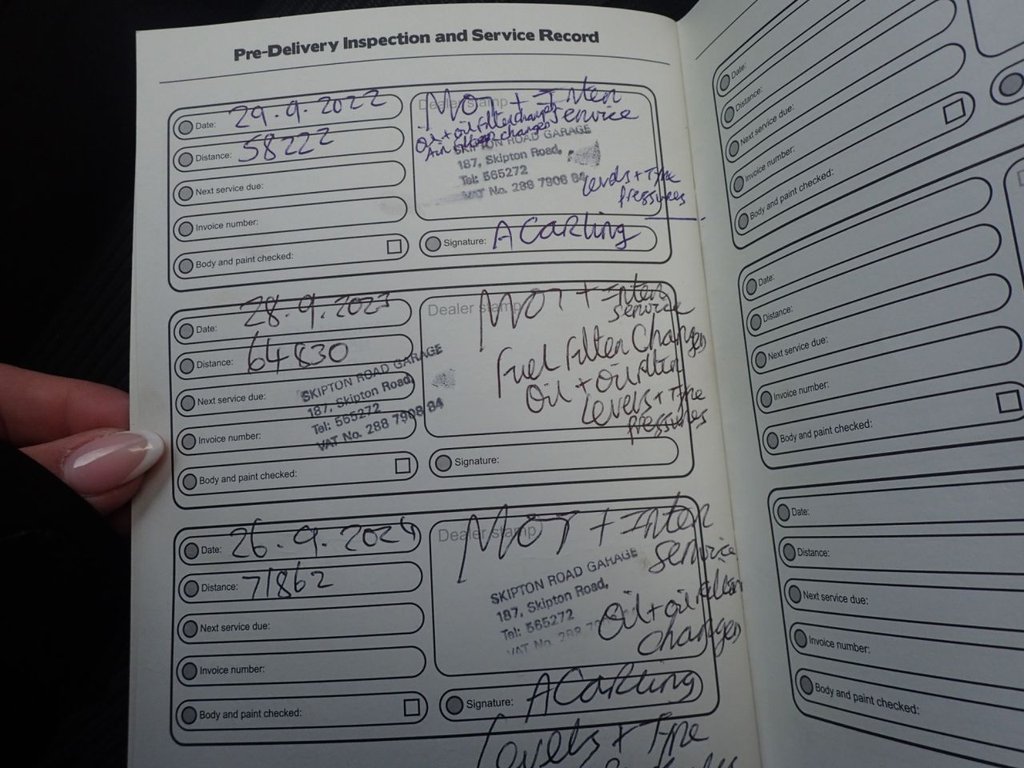 Pre-Delivery Inspection and Service Record
Date: 29.9.2022
Distance: 58222
Next service due:
Invoice number:
Body and paint checked:
Dealer stamp
MOT + Inter
Service
Oil + oil filter changed
Air filter changed
SKIPTON ROAD GARAGE
187, Skipton Road,
Tel: 565272
VAT No. 288 7908 84
Levels + Tyre
pressures
Signature: A Carling
Date: 28.9.2023
Distance: 64830
Next service due:
Invoice number:
Body and paint checked:
SKIPTON ROAD GARAGE
187, Skipton Road,
Tel: 565272
VAT No. 288 7908 84
Dealer stamp
MOT + Inter
service
Fuel Filter Changed
Oil + oil filter
Levels + Tyre
pressures
Signature:
Date: 26.9.2024
Distance: 71862
Next service due:
Invoice number:
Body and paint checked:
Dealer stamp
MOT + Inter
Service
SKIPTON ROAD GARAGE
187, Skipton Road,
Tel: 565272
VAT No. 288
Oil + oil filter
changed
Signature: A Carling
Levels + Tyre
Date:
Distance:
Next service due:
Invoice number:
Body and paint checked:
Date:
Distance:
Next service due:
Invoice number:
Body and paint checked:
Date:
Distance:
Next service due:
Invoice number:
Body and paint checked: